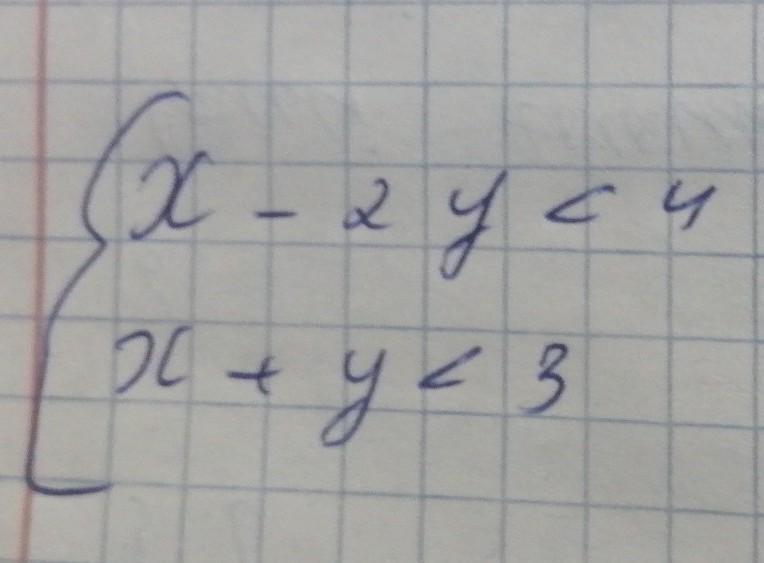 x - 2y < 4
x + y < 3